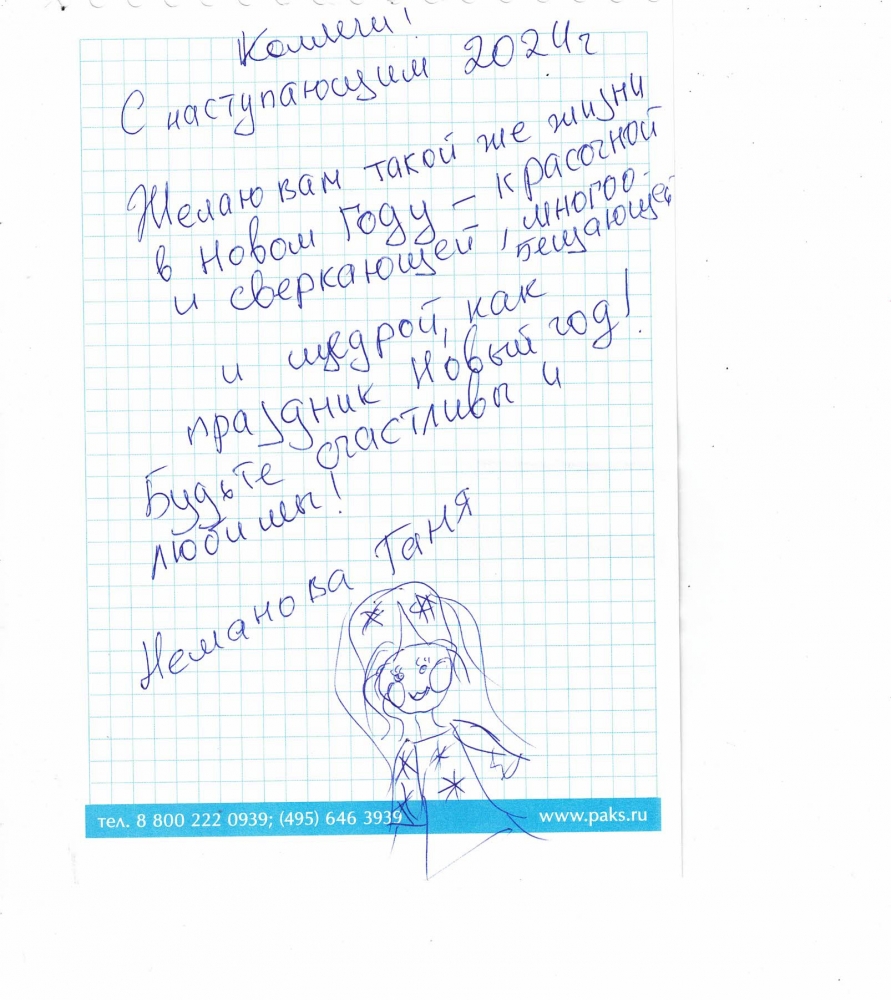 Коллеги!
С наступающим 2024г
Желаю вам такой же жизни
в Новом Году – красочной
и сверкающей, многоо-
бещающей
и щедрой, как
праздник Новый год!
Будьте счастливы и
любимы!
Неманова Таня
тел. 8 800 222 0939; (495) 646 3939
www.paks.ru